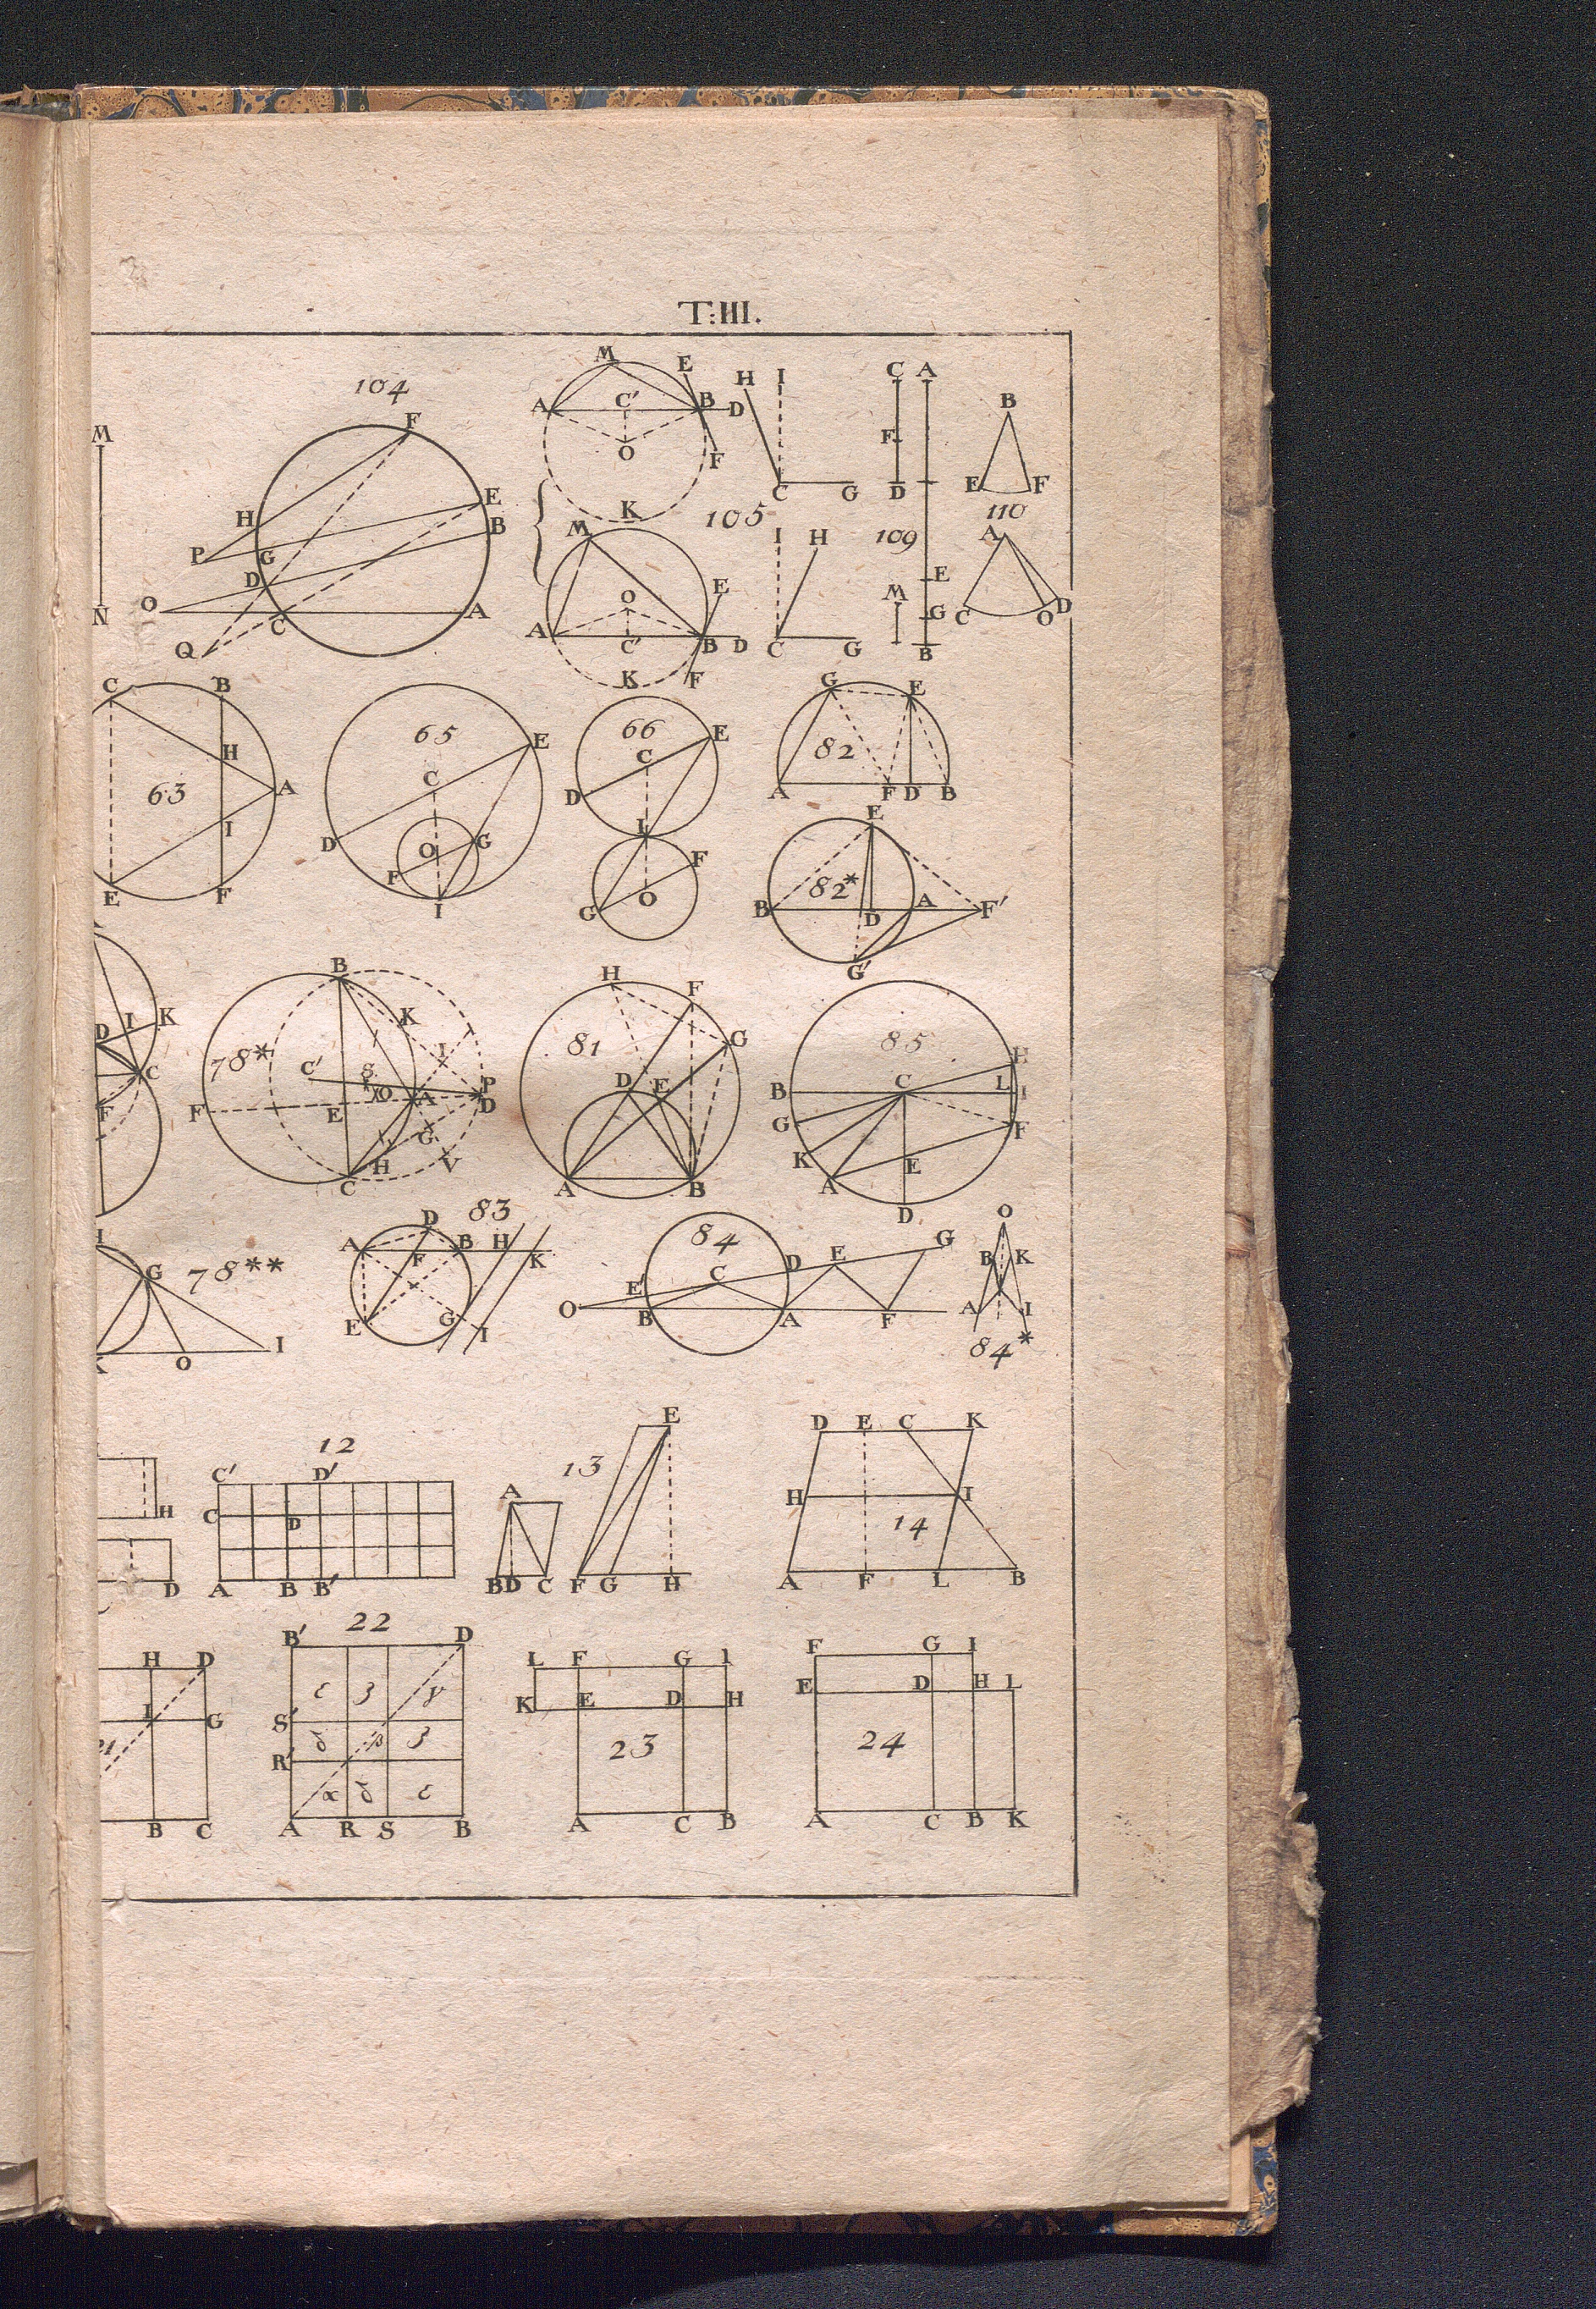 T:III.
104
M
N
F
H
E
B
P
G
D
O
C
A
Q
M
E
A
C'
B
D
O
F
K
105
M
O
E
A
C'
B
D
K
F
H
I
C
G
I
H
C
G
C
A
F
D
109
E
M
G
B
B
E
F
110
A
C
O
D
C
B
H
63
A
I
E
F
65
E
C
D
O
G
F
I
66
C
E
D
I
F
G
O
G
E
82
A
F
D
B
E
82*
B
D
A
F'
G'
D
I
K
C
F
B
78*
K
C'
I
P
F
E
O
A
D
G
H
V
C
H
F
81
G
D
E
A
B
85
H
B
C
L
I
G
F
K
A
E
D
I
G
78**
K
O
I
D
83
A
B
H
F
K
E
G
I
84
G
D
E
E'
C
O
B
A
F
O
B
K
A
I
84*
H
D
12
C'
D'
C
D
A
B
B'
13
E
A
B
D
C
F
G
H
D
E
C
K
H
I
14
A
F
L
B
H
D
I
G
21
B
C
22
B'
D
ε
ζ
γ
S'
δ
β
ζ
R'
α
δ
ε
A
R
S
B
L
F
G
I
K
E
D
H
23
A
C
B
F
G
I
E
D
H
L
24
A
C
B
K